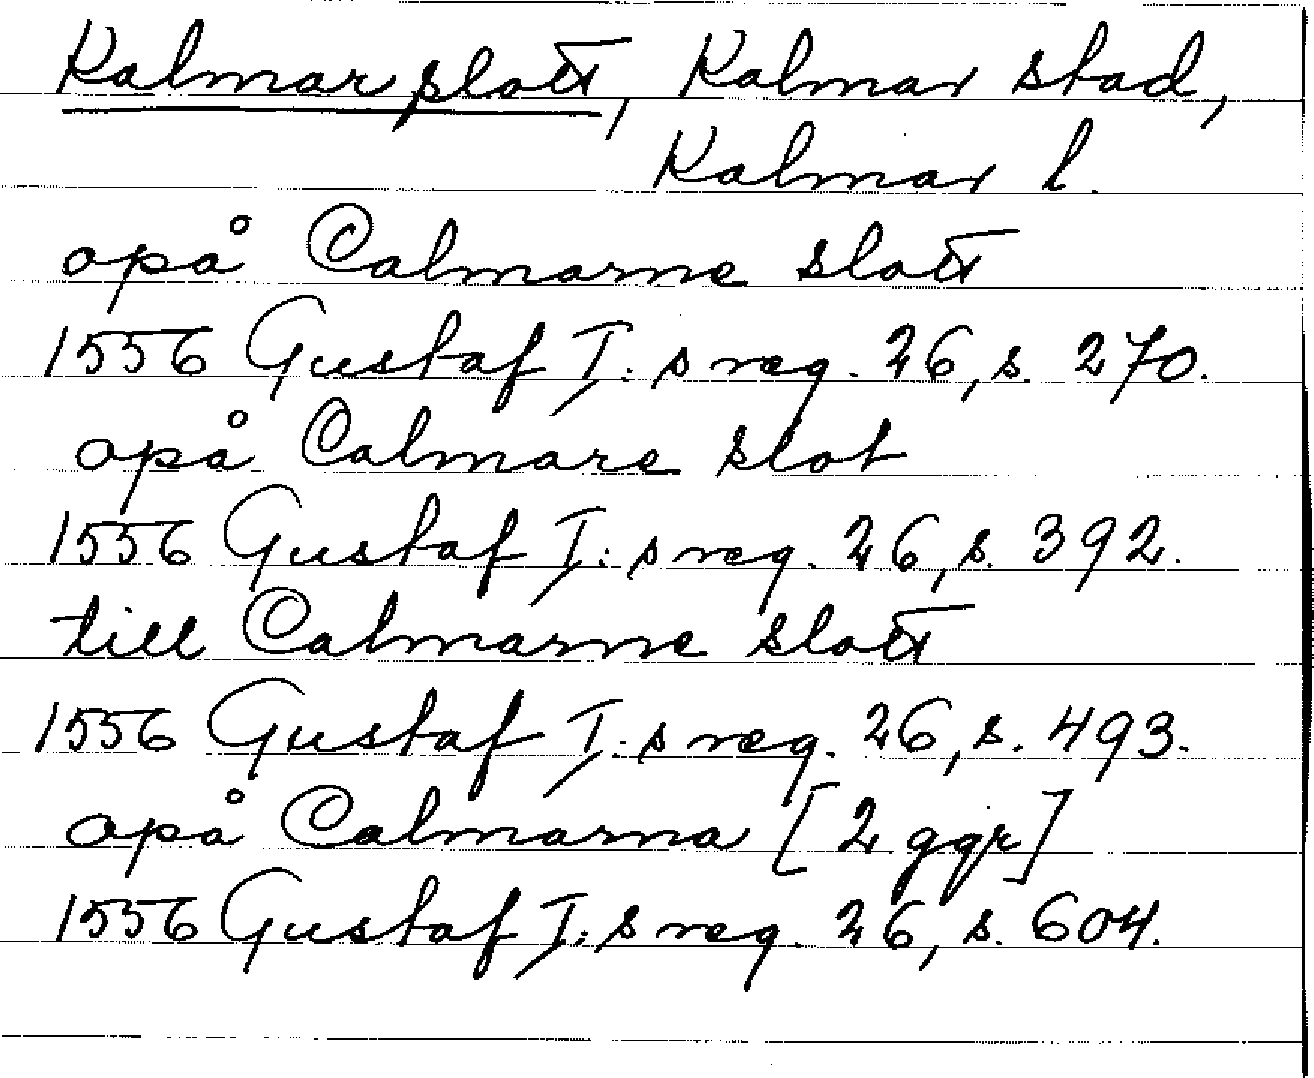 Kalmar slott, Kalmar stad,
Kalmar l.
opå Calmarne slott
1556 Gustaf I:s reg. 26, s. 270.
opå Calmare slot
1556 Gustaf I:s reg. 26, s. 392.
till Calmarne slott
1556 Gustaf I:s reg. 26, s. 493.
opå Calmarna [2 ggr]
1556 Gustaf I:s reg. 26, s. 604.